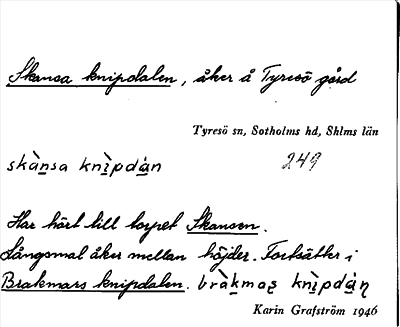 Skansa knipdalen, åker å Tyresö gård
Tyresö sn, Sotholms hd, Shlms län
skànsa knìpdạn 249
Har hört till torpet Skansen.
Långsmal åker mellan höjder. Fortsätter i
Brakmars knipdalen. bràkmas knìpdạn
Karin Grafström 1946